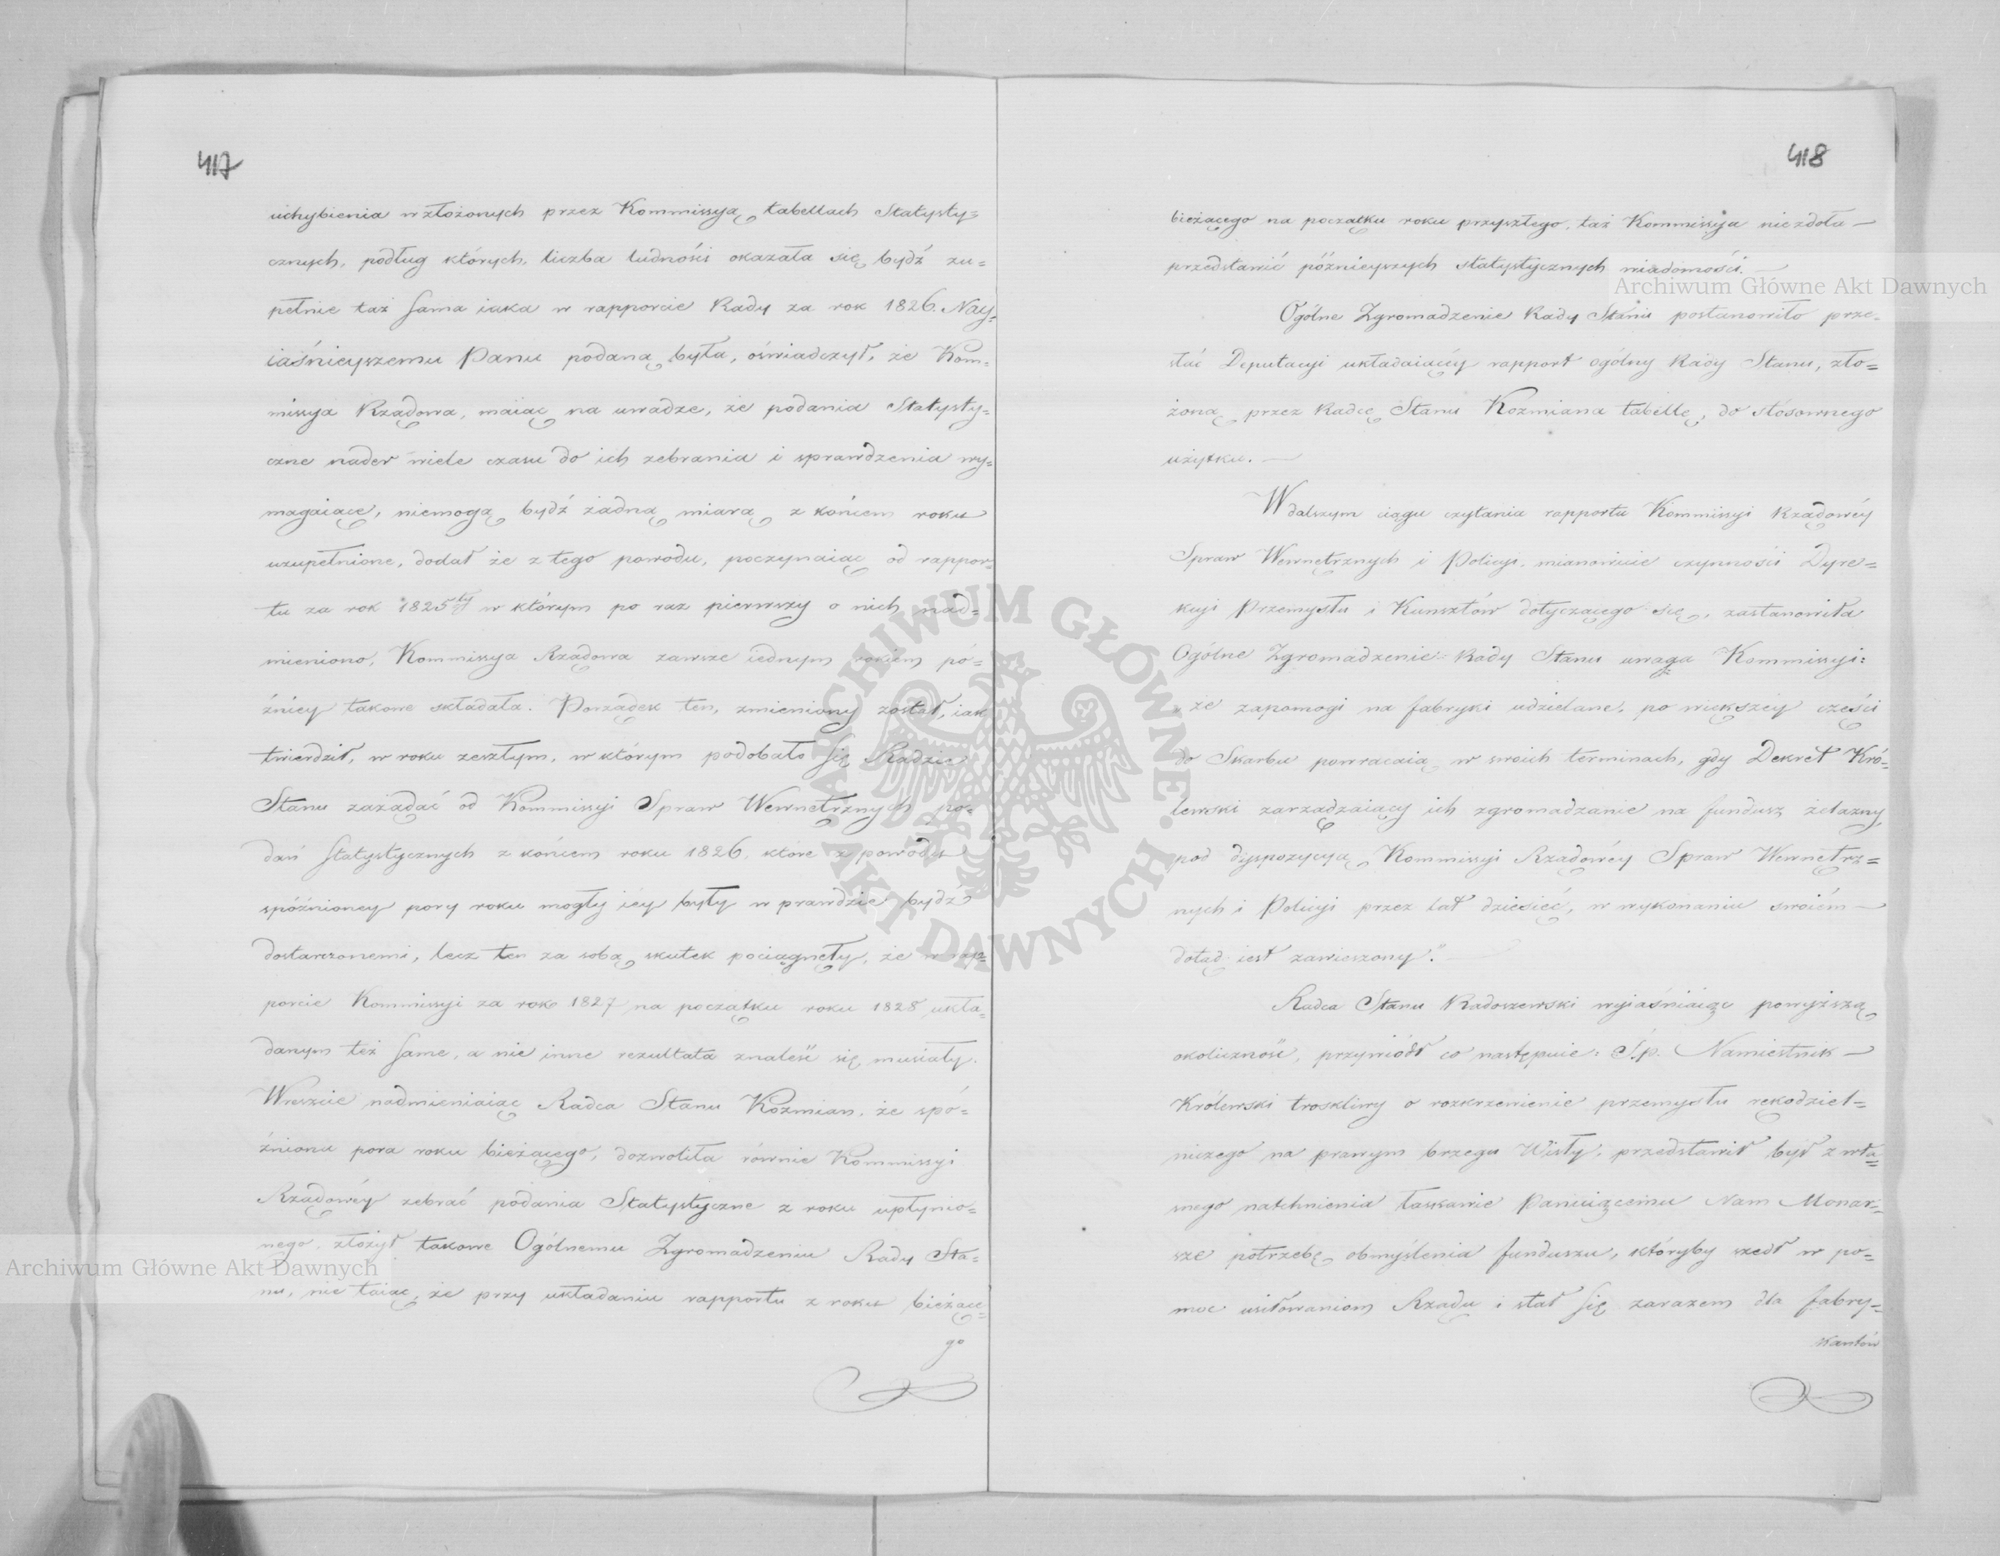 417
uchybienia w złożonych przez Kommissyą tabellach Statysty=
cznych, podług których, liczba ludności okazała się bydź zu=
pełnie taż sama iaka w rapporcie Rady za rok 1826. Nay=
iaśnieyszemu Panu podaną była, oświadczył, że Kom=
missya Rządowa, maiąc na uwadze, że podania Statysty=
czne nader wiele czasu do ich zebrania i sprawdzenia wy=
magaiące, niemogą bydź żadną miarą z końcem roku
uzupełnione, dodał że z tego powodu, poczynaiąc od rappor=
tu za rok 1825ty w którym po raz pierwszy o nich nad=
mieniono, Kommissya Rządowa zawsze iednym rokiem pó=
źniey takowe składała. Porządek ten, zmieniony został, iak
twierdził, w roku zeszłym, w którym podobało się Radzie
Stanu zażądać od Kommissyi Spraw Wewnętrznych po=
dań statystycznych z końcem roku 1826, które z powodu
spóźnioney pory roku mogły iey były w prawdzie bydź
dostarczonemi, lecz ten za sobą skutek pociągnęły, że w rap=
porcie Kommissyi za rok 1827 na początku roku 1828 ukła=
danym też same, a nie inne rezultata znaleść się musiały.
Wreszcie nadmieniaiąc Radca Stanu Koźmian, że spó=
źniona pora roku bieżącego, dozwoliła równie Kommissyi
Rządowéy zebrać podania Statystyczne z roku upłynio=
nego, złożył takowe Ogólnemu Zgromadzeniu Rady Sta=
nu, nie taiąc, że przy układaniu rapportu z roku bieżące=
go
418
bieżącego na początku roku przyszłego, taż Kommissya niezdoła —
przedstawić późnieyszych statystycznych wiadomości. —
Ogólne Zgromadzenie Rady Stanu postanowiło prze=
słać Deputacyi układaiącéy rapport ogólny Rady Stanu, zło=
żoną przez Radcę Stanu Koźmiana tabellę, do stósownego
użytku. —
W dalszym ciągu czytania rapportu Kommissyi Rządowéy
Spraw Wewnętrznych i Policyi, mianowicie czynności Dyre=
kcyi Przemysłu i Kunsztów dotyczącego się, zastanowiła
Ogólne Zgromadzenie Rady Stanu uwaga Kommissyi:
„że zapomogi na fabryki udzielane, po większéy części
do Skarbu powracaią w swoich terminach, gdy Dekret Kró=
lewski zarządzaiący ich zgromadzanie na fundusz żelazny
pod dyspozycyą Kommissyi Rządowéy Spraw Wewnętrz=
nych i Policyi przez lat dziesięć, w wykonaniu swoiém —
dotąd iest zawieszony." —
Radca Stanu Radoszewski wyiaśniaiąc powyższą
okoliczność, przywiódł co następuie: Ś.p. Namiestnik —
Królewski troskliwy o rozkrzewienie przemysłu rękodziel=
niczego na prawym brzegu Wisły, przedstawił był z wła=
snego natchnienia łaskawie Panuiącemu Nam Monar=
sze potrzebę obmyślenia funduszu, któryby szedł w po=
moc usiłowaniom Rządu i stał się zarazem dla fabry=
kantów
Archiwum Główne Akt Dawnych
Archiwum Główne Akt Dawnych
ARCHIWUM GŁÓWNE AKT DAWNYCH